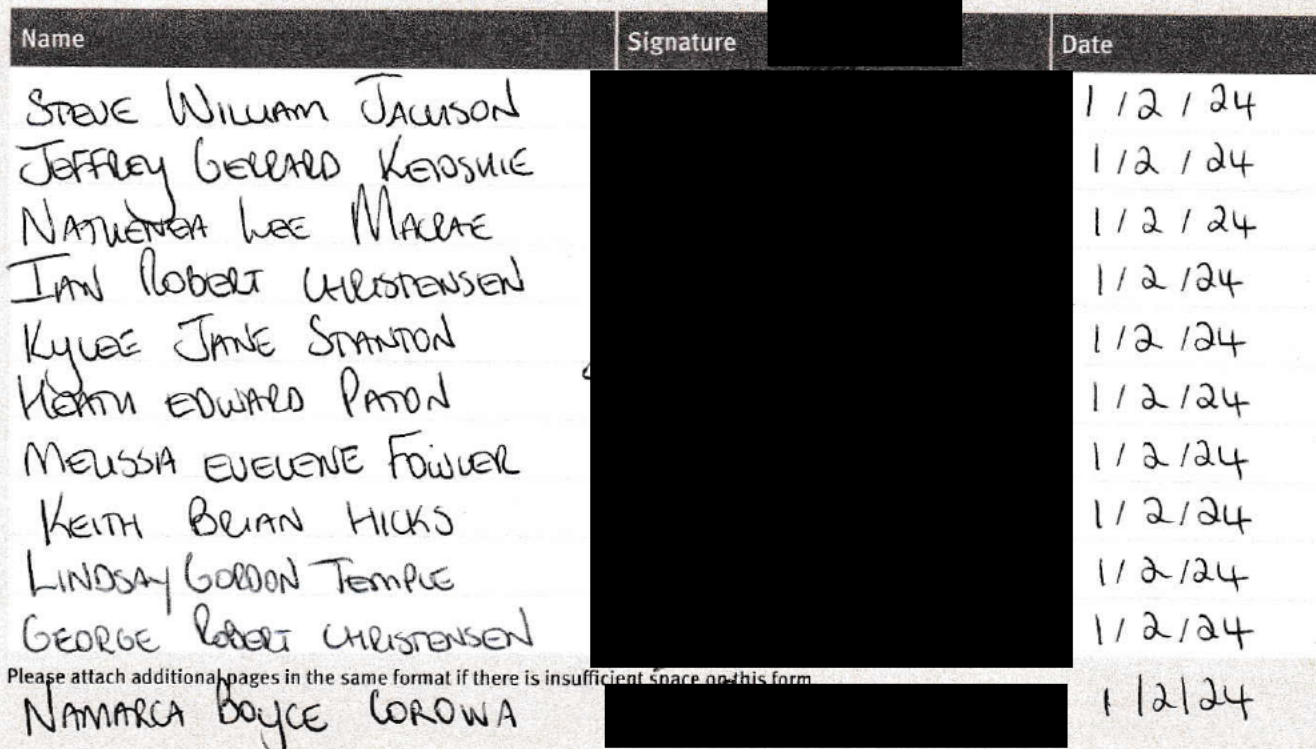 Name Signature Date
STEVE WILLIAM JACKSON 1/2/24
JEFFREY GERRARD 1/2/24
LEE MACRAE 1/2/24
IAN ROBERT CHRISTENSEN 1/2/24
KYLEE JANE STANTON 1/2/24
HEATH EDWARD PATON 1/2/24
MELISSIA EVELENE FOWLER 1/2/24
KEITH BRIAN HICKS 1/2/24
LINDSAY GORDON TEMPLE 1/2/24
GEORGE ROBERT CHRISTENSEN 1/2/24
Please attach additional pages in the same format if there is insufficient space on this form
NAMARCA BOYCE COROWA 1/2/24